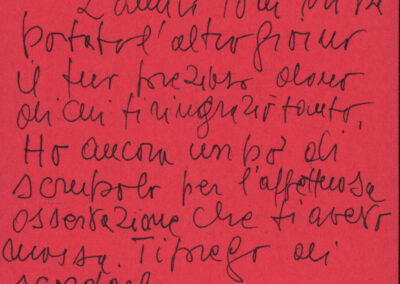 portato l'altro giorno
il tuo prezioso dono
di cui ti ringrazio tanto.
Ho ancora un po' di
scrupolo per l'affettuosa
osservazione che ti avevo
mossa. Ti prego di